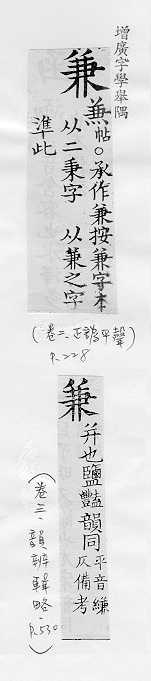 增廣字學舉隅
兼
𠔥帖。承作兼按兼字本
从二秉字 从兼之字
準此
(卷二、正譌平聲)
P.228
兼
并也鹽豔韻同平音縑
仄備考
(卷三、韻辨輯略.
P.530